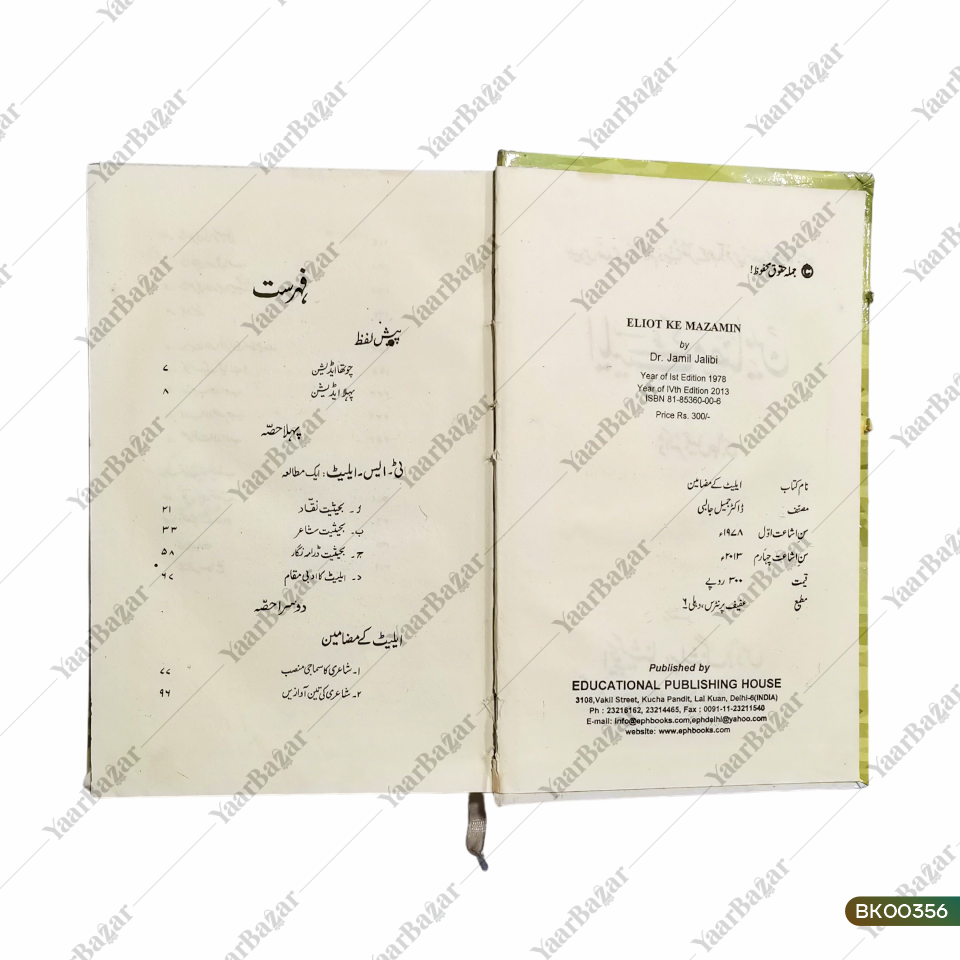 © جملہ حقوق محفوظ!
ELIOT KE MAZAMIN
by
Dr. Jamil Jalibi
Year of Ist Edition 1978
Year of IVth Edition 2013
ISBN 81-85360-00-6
Price Rs. 300/-
نام کتاب ایلیٹ کے مضامین
مصنف ڈاکٹر جمیل جالبی
سن اشاعت اوّل ۱۹۷۸ء
سن اشاعت چہارم ۲۰۱۳ء
قیمت ۳۰۰ روپے
مطبع عفیف پرنٹرس، دہلی ۶
Published by
EDUCATIONAL PUBLISHING HOUSE
3108,Vakil Street, Kucha Pandit, Lal Kuan, Delhi-6(INDIA)
Ph : 23216162, 23214465, Fax : 0091-11-23211540
E-mail: info@ephbooks.com,ephdelhi@yahoo.com
website: www.ephbooks.com
فہرست
پیش لفظ
چوتھا ایڈیشن ۷
پہلا ایڈیشن ۸
پہلا حصّہ
ٹی۔ ایس۔ ایلیٹ: ایک مطالعہ
ا۔ بحیثیت نقّاد ۲۱
ب۔ بحیثیت شاعر ۳۳
ج۔ بحیثیت ڈرامہ نگار ۵۸
د۔ ایلیٹ کا ادبی مقام ۶۷
دوسرا حصّہ
ایلیٹ کے مضامین
۱۔ شاعری کا سماجی منصب ۷۷
۲۔ شاعری کی تین آوازیں ۹۶
BK00356
YaarBazar